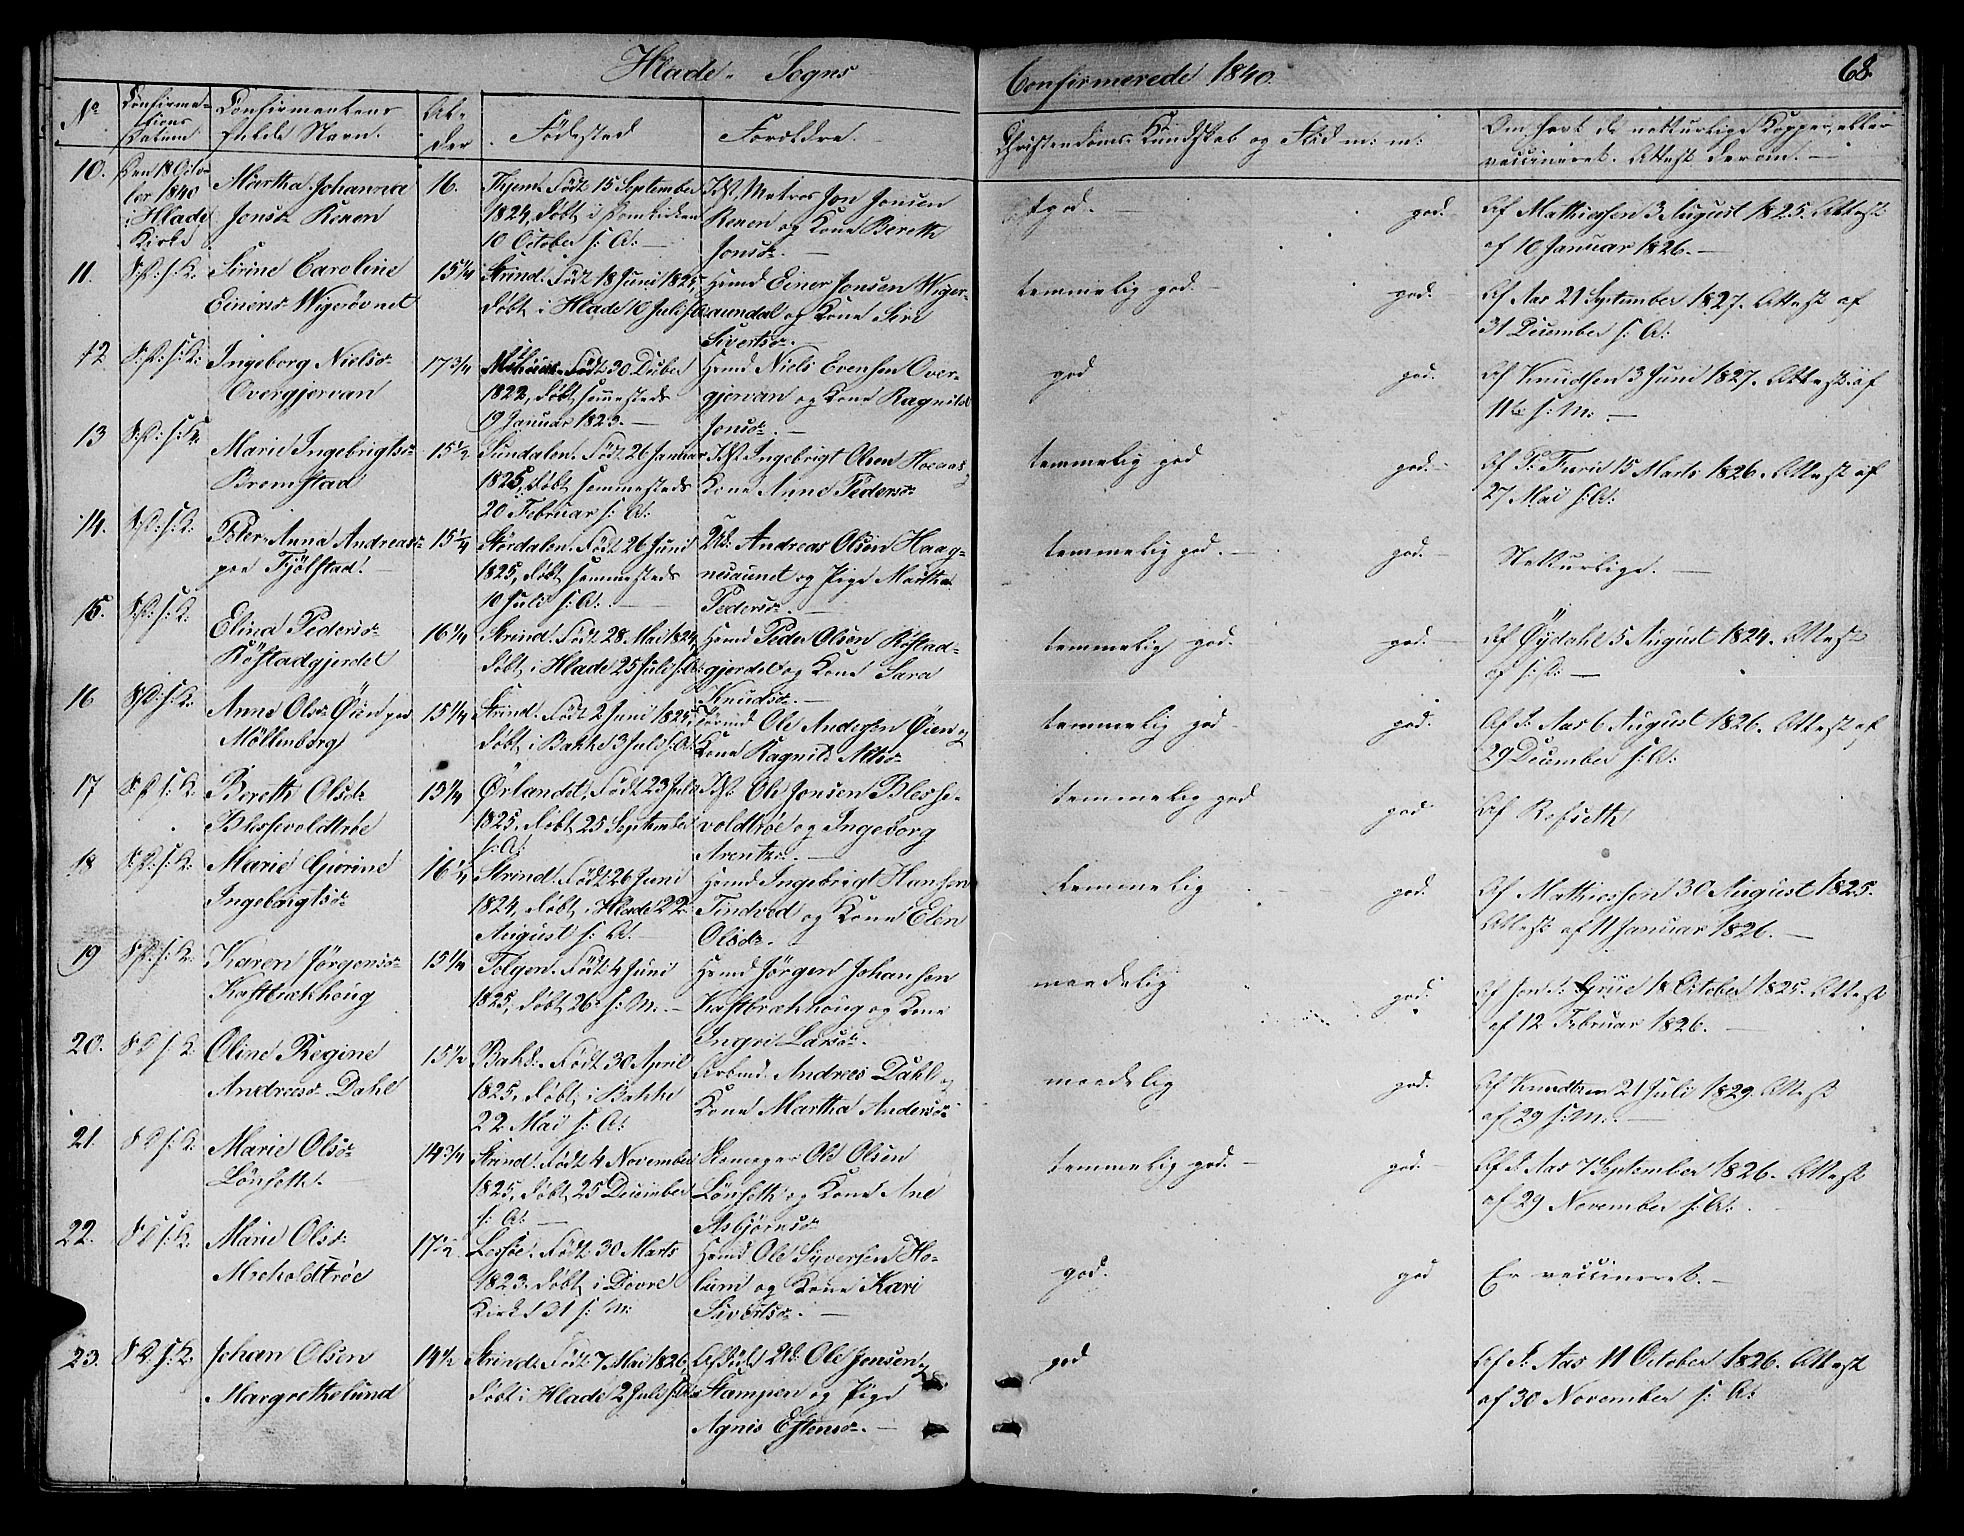 Hlade Sogns Confirmerede 1840. 68.
No Confirmations Datum Confirmantens fulde Navn. Alder Födested Forældre. Christendoms Kundskab og Flid m: m: Om havt de naturlige Kopper, eller vaccineret. Attest derom.
10. Den 18 October 1840 i Hlade Kirke
Martha Johanna
Jonsd:
16.
Hjem. Födt 15 September
1824, döbt i Domkirken
10 October s: A:
Mathros Jon Jonsen
og Kone Bereth
Jonsd:
god.
god.
Af Mathiesen 3 August 1825. Attest
af 10 Januar 1826.
11. S: D: s: K:
Sirine Caroline
Einersd:
15 1/4
Strind. Födt 18 Juni 1825,
döbt i Hlade 10 Juli s: A:
Huusmd Einer Jonsen
og Kone Siri
Sivertsd:
temmelig god
god.
Af Aas 21 September 1827. Attest af
31 December s: A:
12 S: D: s: K:
Ingeborg Nielsd:
Overgjervan
17 3/4
Födt 30 Decber
1822, döbt sammesteds
19 Januar 1823.
Huusmd Niels Evensen Over-
gjervan og Kone Ragnild
Jonsd:
god
god.
Af Knudsen 3 Juni 1827. Attest af
11te s: M:
13 S: D: s: K:
Marie Ingebrigtsd:
Bromstad
15 1/2
Sundalen. Födt 26 Januar
1825, döbt sammesteds
20 Februar s: A:
Ingebrigt Olsen
Kone Anne Pedersd:
temmelig god
god.
15 Marts 1826. Attest af
27 Mai s: A:
14. S: D: s: K:
Anna Andreasd:
paa Fjölstad.
15 1/4
Stördalen. Födt 26 Juni
1825, döbt sammesteds
10 Juli s: A:
Andreas Olsen Haag-
nesaunet og Pige Martha
Pedersd:
temmelig god.
god.
Naturlige.
15. S: D: s: K:
Elina Pedersd:
Röstadgjerdet
16 1/4
Strind. Födt 28 Mai 1824,
döbt i Hlade 25 Juli s: A:
Huusmd Peder Olsen Röstad-
gjerdet og Kone Sara
Knudsd:
temmelig god.
god.
Af Öydahl 5 August 1824. Attest
af s: D:
16 S: D: s: K:
Anne Olsd: Öien paa
Möllenberg
15 1/4
Strind. Födt 2 Juni 1825,
döbt i Bakke 3 Juli s: A:
Ole Andersen Öien og
Kone Ragnild
temmelig god
god.
Af S: Aas 6 August 1826. Attest af
29 December s: A:
17 S: D: s: K:
Bereth Olsd:
Blessevoldtröe
15 1/4
Örlandet, Födt 23 Juli
1825, döbt 25 September
s: A:
Ole Jonsen Blesse-
voldtröe og Ingeborg
Arentzd:
temmelig god
god
Af Refseth
18 S: D: s: K:
Marie Gjorine
Ingebrigtsd:
16 1/4
Strind. Födt 26 Juni
1824, döbt i Hlade 22
August s: A:
Huusmd Ingebrigt Hansen
Tindved og Kone Elen
Olsd:
temmelig
god.
Af Mathiesen 30 August 1825.
Attest af 11 Januar 1826.
19 S: D: s: K:
Karen Jörgensd:
Kastbrækhoug
15 1/4
Tolgen. Födt 4 Juni
1825, döbt 26 s: M:
Huusmd Jörgen Johansen
Kastbrækhoug og Kone
Ingri Larsd:
maadelig
god.
Af Jon S: Grue 18 October 1825. Attest
af 12 Februar 1826.
20. S: D: s: K:
Oline Regine
Andreasd: Dahl
15 1/2
Bakke. Födt 30 April
1825, döbt i Bakke
22 Mai s: A:
Arbmd. Andreas Dahl og
Kone Martha Andersd:
maadelig
god.
Af Knudtzen 21 Juli 1829. Attest
af 29 s: M:
21. S: D: s: K:
Marie Olsd:
Lönseth
14 3/4
Strind. Födt 4 November
1825, döbt 25 December
s: A:
Skomager Ole Olsen
Lönseth og Kone Ane
Asbjörnsd:
temmelig god.
god.
Af S: Aas 7 September 1826. Attest
af 29 November s: A:
22. S: D: s: K:
Marie Olsd:
Moeholdtröe
17 1/2
Lessöe. Födt 30 Marts
1823, döbt i Dovre
Kirke 31 s: M:
Huusmd Ole Syversen
og Kone Kari
Sivertsd:
god.
god
Er vaccineret.
23. S: D: s: K:
Johan Olsen
Margrethelund
14 1/2
Strind. Födt 7 Mai 1826,
döbt i Hlade 2 Juli s: A:
Ole Jensen
Stampen og Pige
Agnis Estensd:
god
Af S: Aas 11 October 1826. Attest
af 30 November s: A: